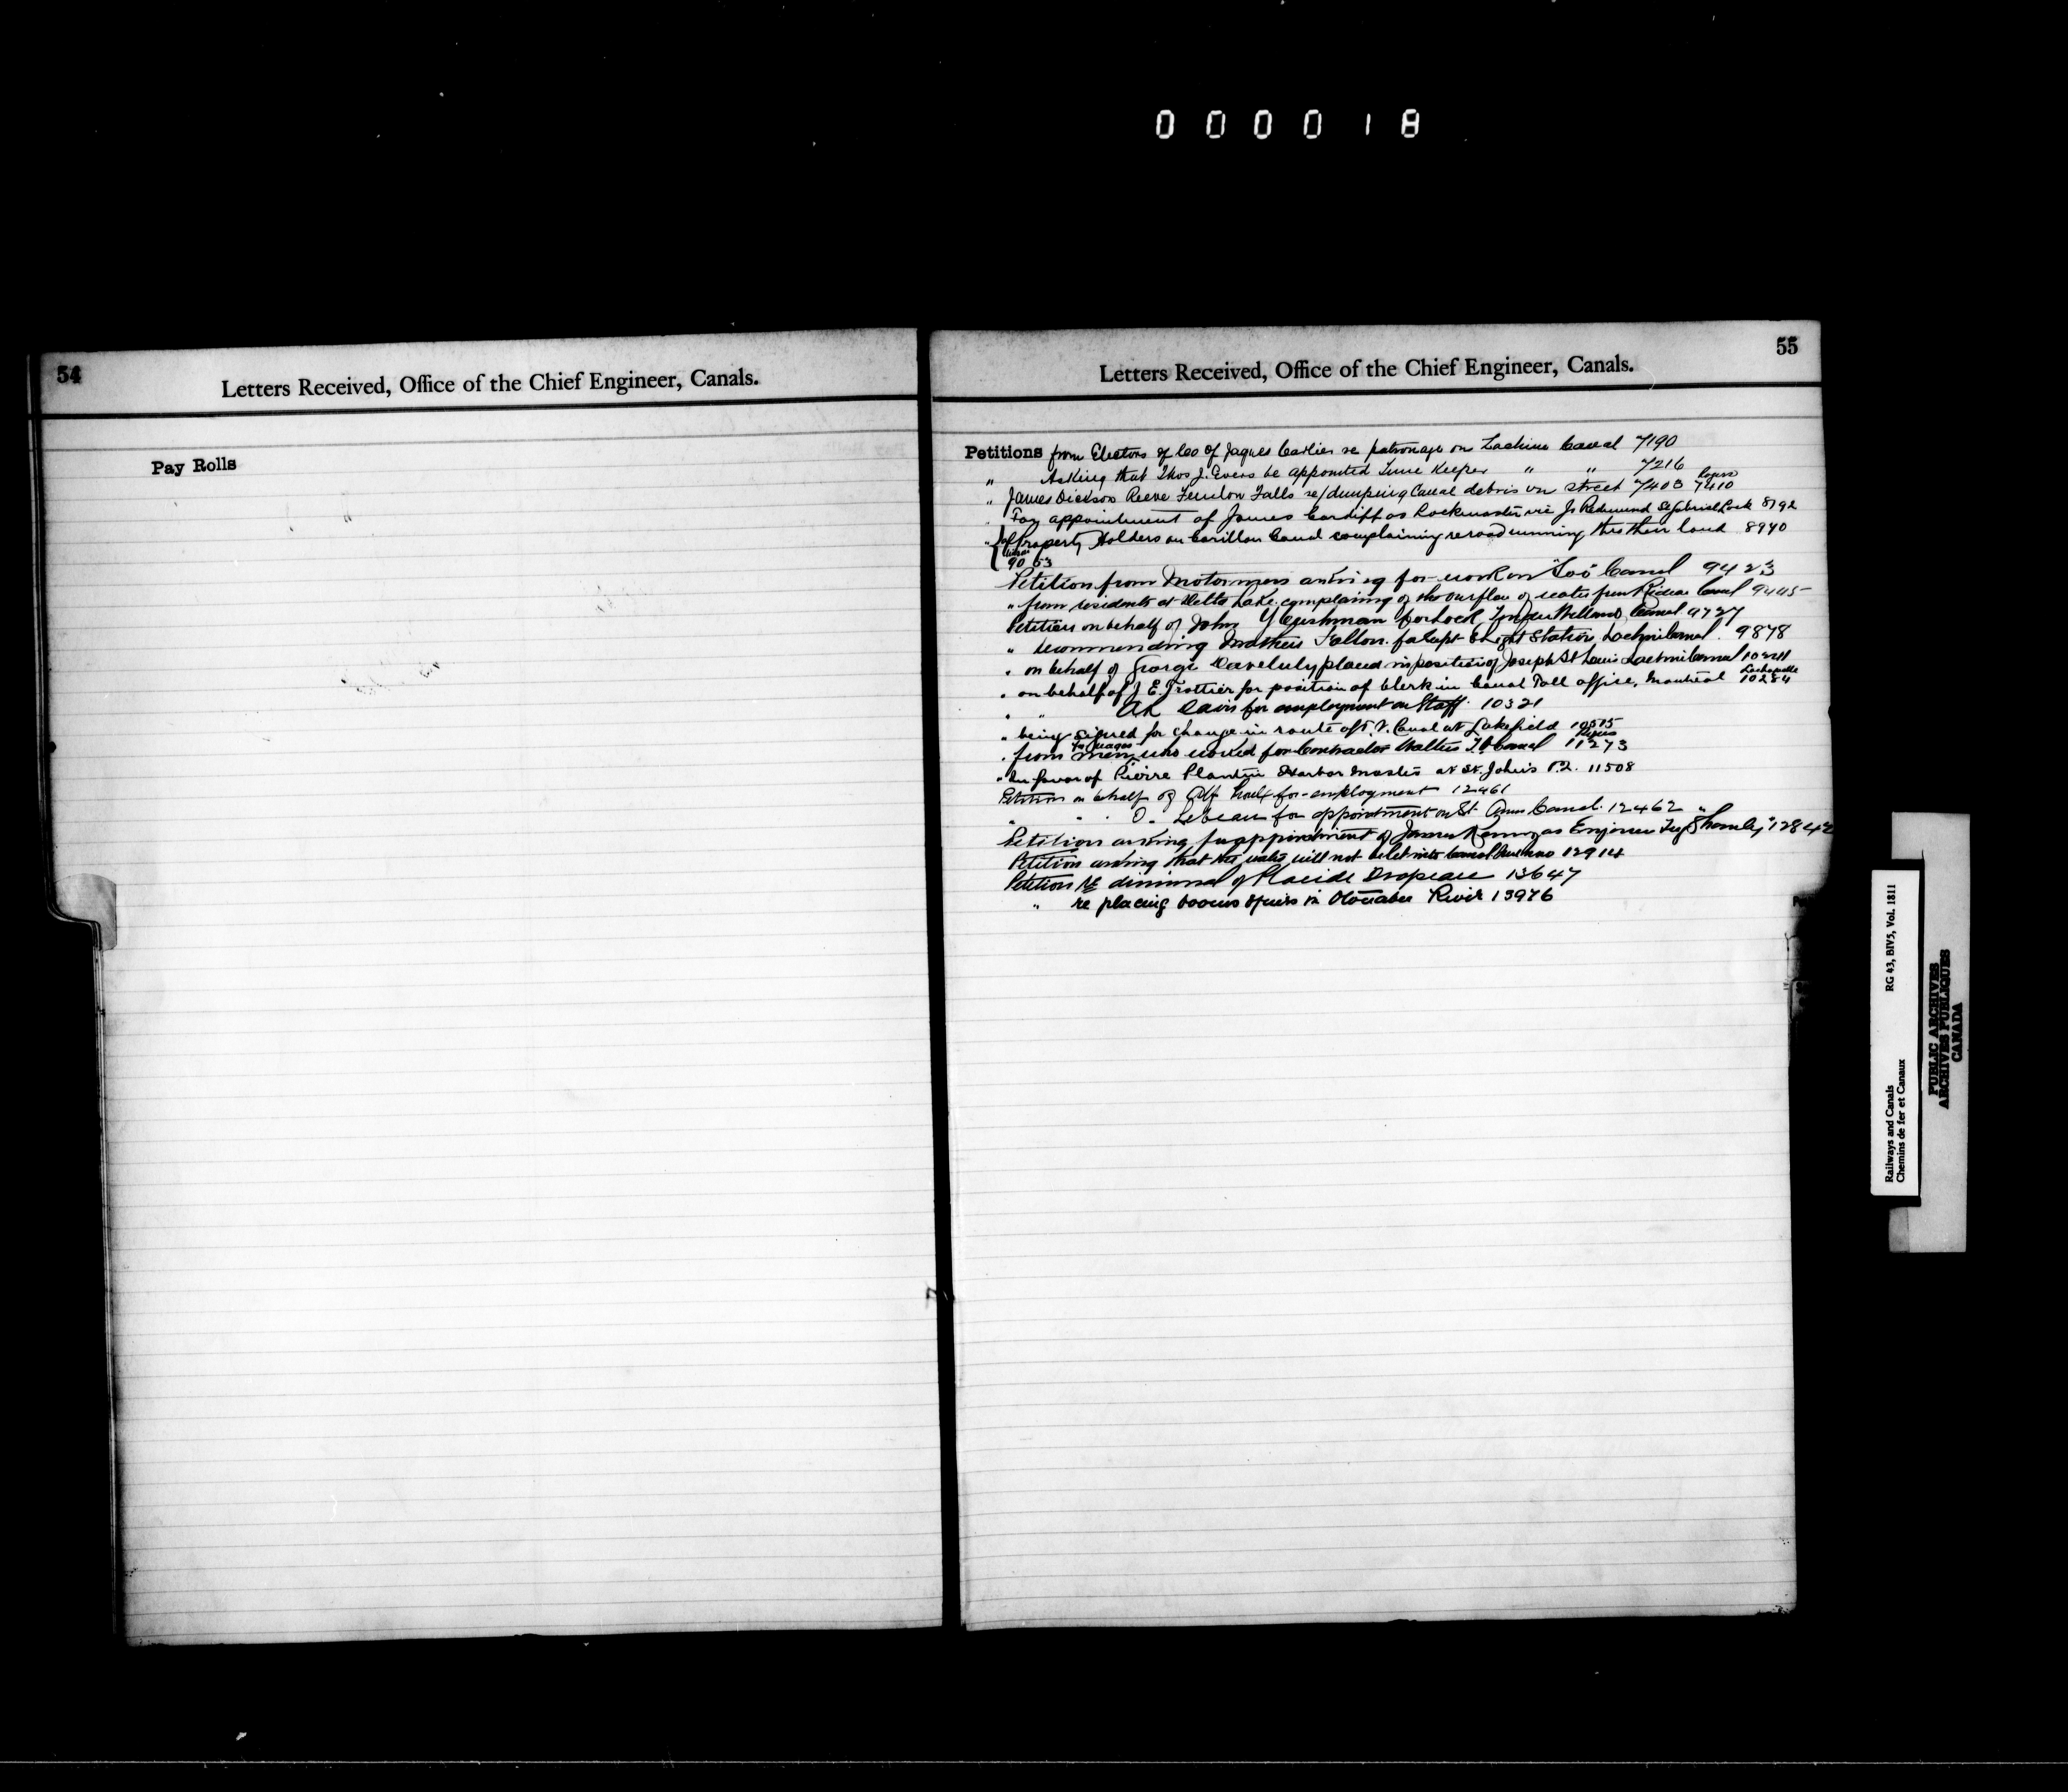 000018
54
Letters Received, Office of the Chief Engineer, Canals.
Pay Rolls
55
Letters Received, Office of the Chief Engineer, Canals.
Petitions from Electors of Co of Jaques Cartier re patronage on Lachine Canal 7190
" Asking that Thos J. Evers be appointed Time Keeper " " 7216
" James Dickson Reeve Fenelon Falls re/dumping Canal debris on street 7403 7410
" For appointment of James Cardiff as Lockmaster vice Js Redmund St Gabriel Lock 8192
" of Property Holders on Carillon Canal complaining re road running thro their land 8940
9053
Petition from Motormen asking for work on "Soo" Canal 9423
" from residents at Delta Lake complaining of the overflow of water from Rideau Canal 9445
Petition on behalf of John Y Cushman for Lock Tender Welland Canal 9727
" recommending Mathew Fallon for Supt Light Station, Lachine Canal. 9878
" on behalf of George placed in position of Joseph St Louis Lachine Canal
" on behalf of J. E. Trottier for position of Clerk in Canal Toll office, Montreal 10284
" " AR Davis for employment on Staff. 10321
" being signed for change in route of T. V. Canal at Lakefield 10515
" from men who worked for Contractor Walter T V Canal 11273
for wages
" in favor of Pierre Plante Harbor Master at St. John's P.Q. 11508
Petition on behalf of Alf for employment 12461
" " " O. Lebeau for appointment on St. Anns Canal. 12462
Petition asking for appointment of James as Engineer Tug "Shanly" 12842
Petition asking that the water will not be let into Canal 12914
Petition re dismissal of Placide Drapeau 13647
" re placing booms & piers in Otonabee River 13976
Railways and Canals RG 43, BIV5, Vol. 1811
Chemins de fer et Canaux
PUBLIC ARCHIVES
ARCHIVES PUBLIQUES
CANADA